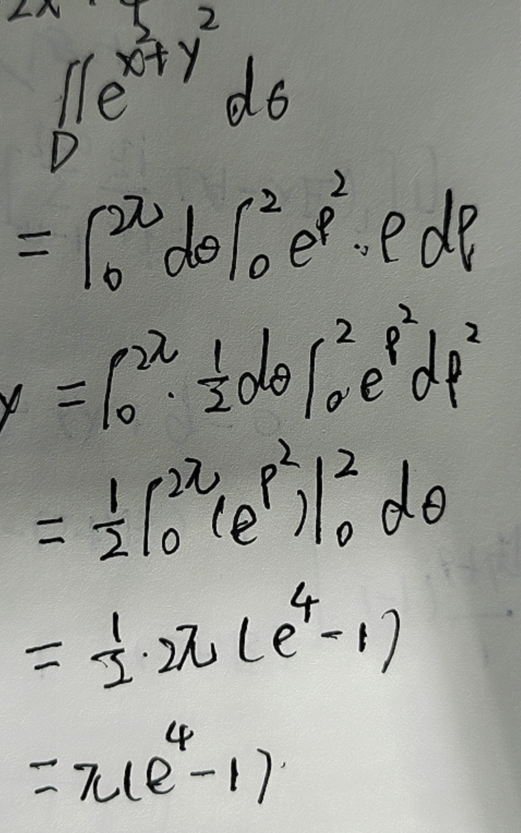 ∬_D e^{x²+y²} dσ
= ∫₀^{2π} dθ ∫₀² e^{ρ²} · ρ dρ
= ∫₀^{2π} · ½ dθ ∫₀² e^{ρ²} dρ²
= ½ ∫₀^{2π} (e^{ρ²})|₀² dθ
= ½ · 2π (e⁴ - 1)
= π(e⁴ - 1)